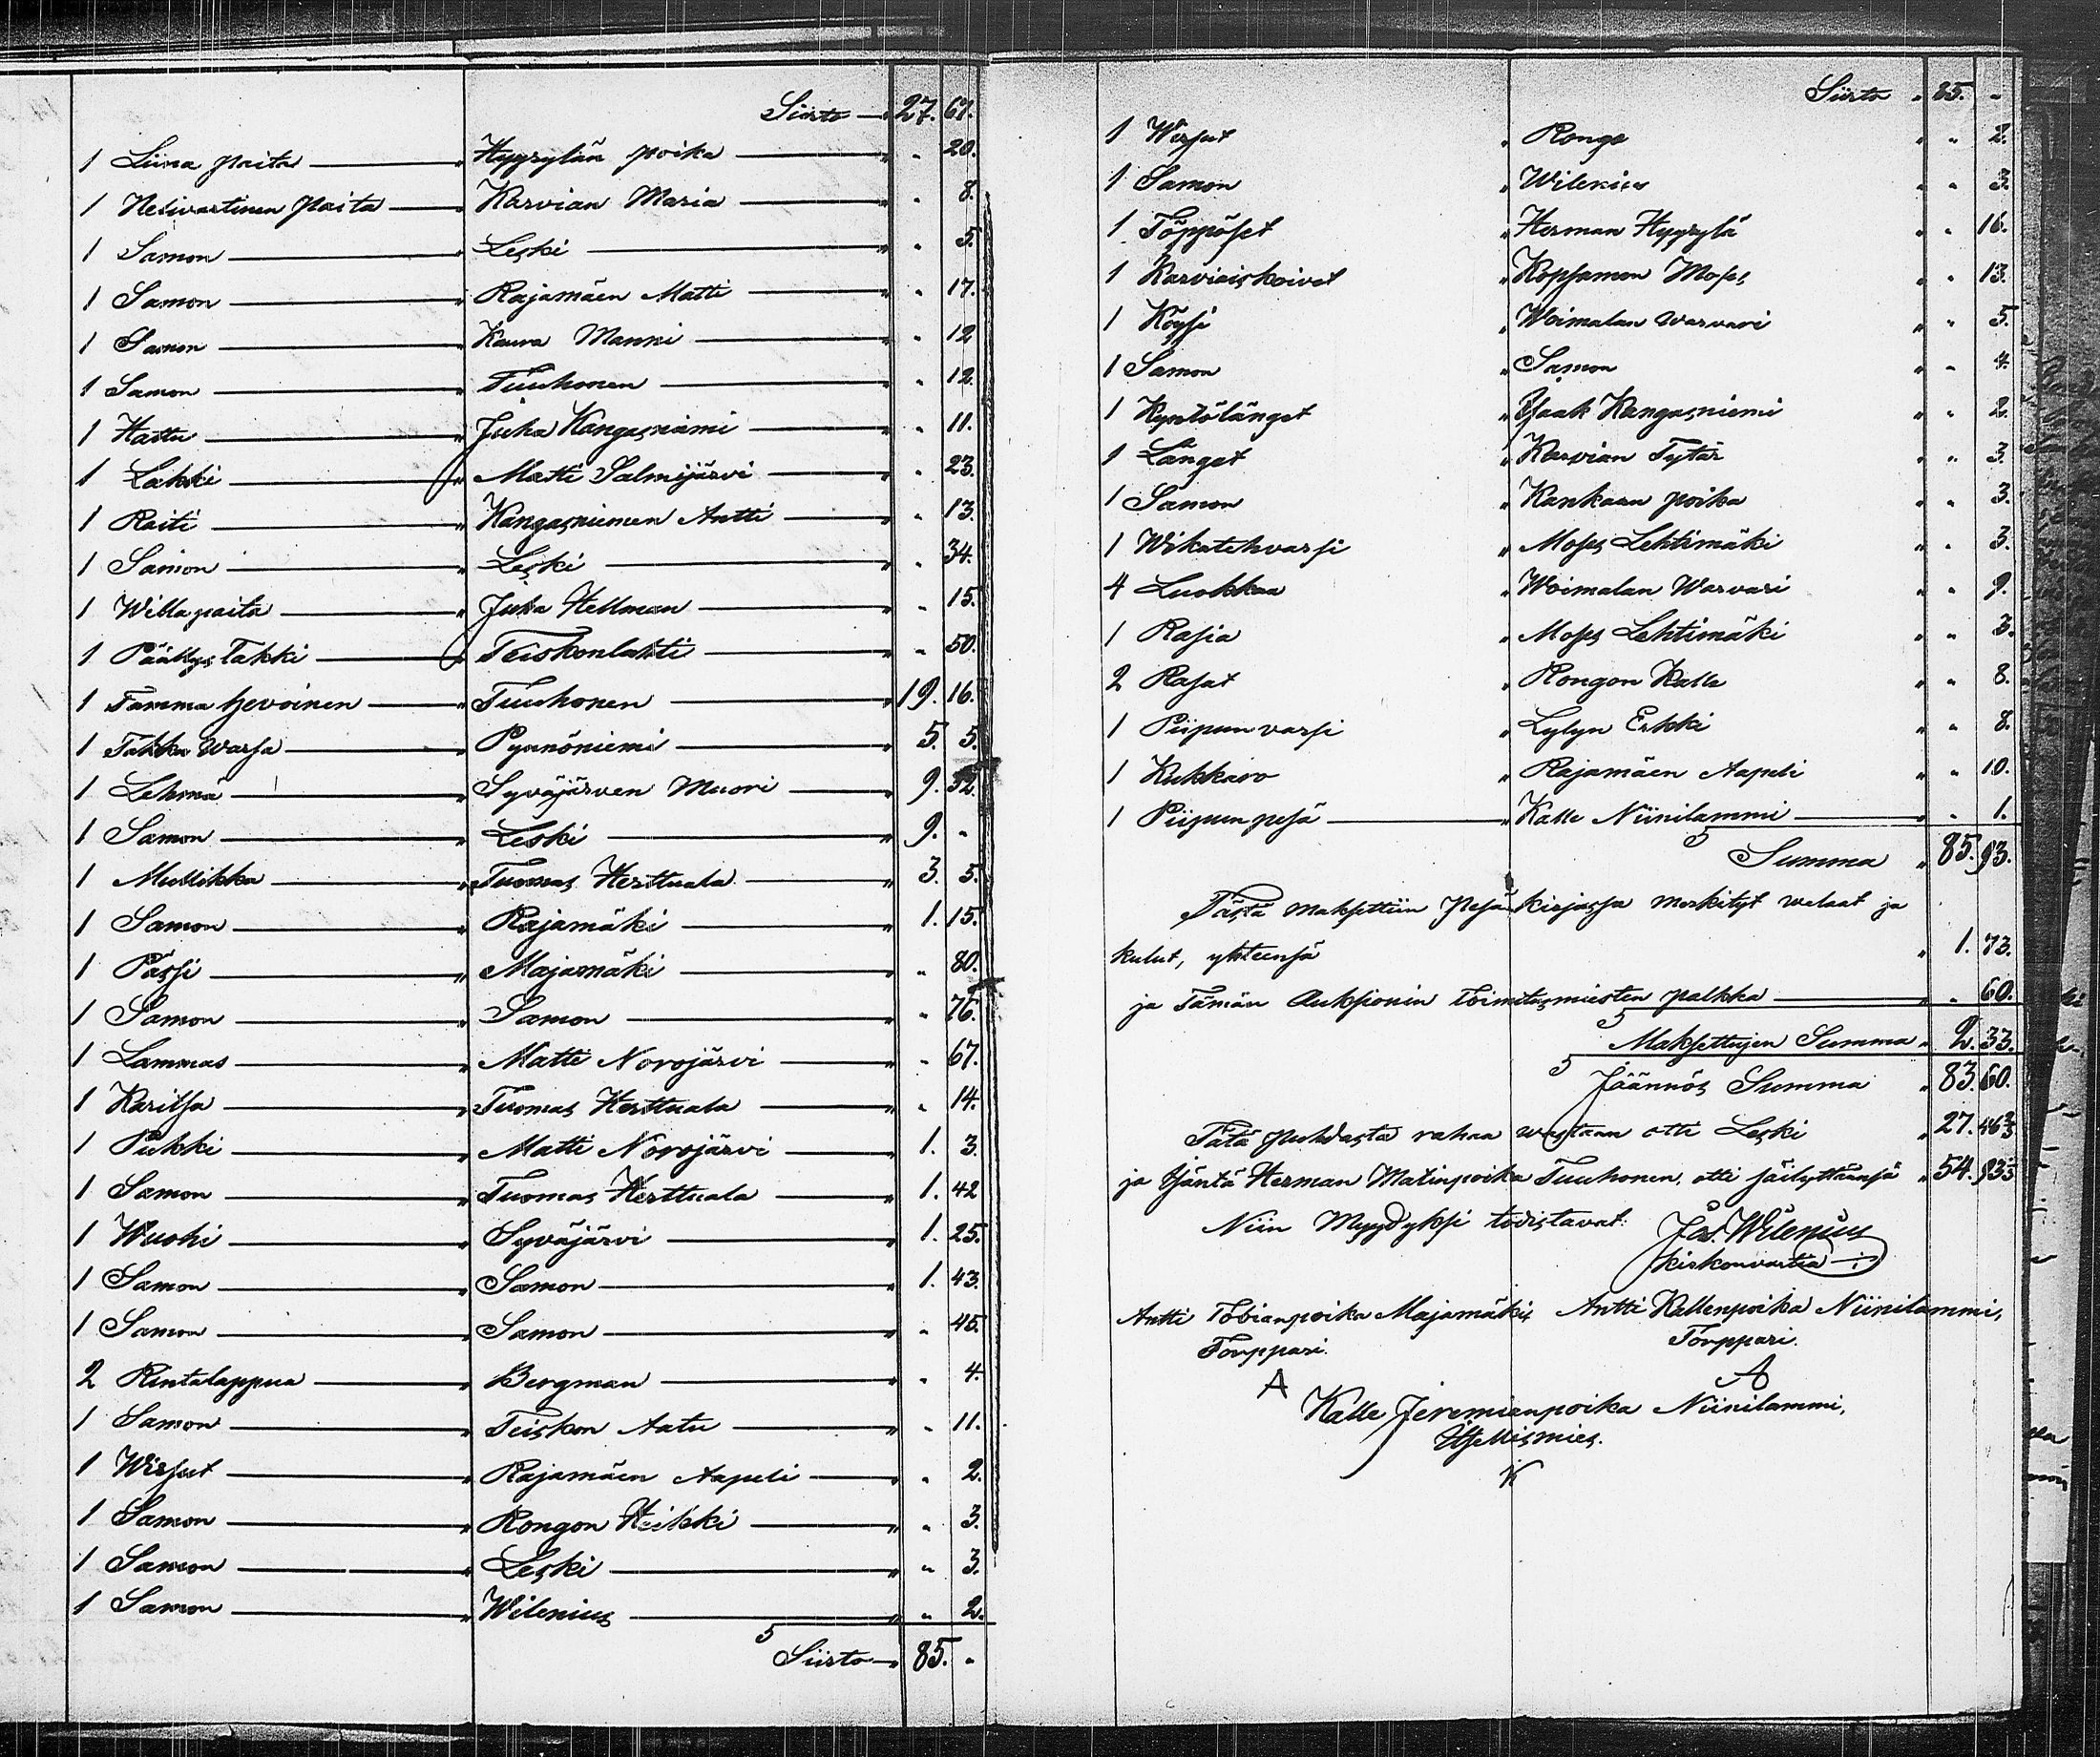 Siirto — 27. 67.
1 Liina paita — " Hyyrylän poika — " 20.
1 Netivartinen paita — " Karvian Maria — " 8.
1 Samon — " Leski — " 5.
1 Samon — " Rajamäen Matti — " 17.
1 Samon — " Kaura Manni — " 12
1 Samon — " Tuuhonen — " 12.
1 Hattu — " Juha Kangasniemi — " 11.
1 Lakki — " Matti Salmijärvi — " 23.
1 Raiti — " Kangasniemen Antti — " 13.
1 Samon — " Leski — " 34.
1 Willapaita — " Juha Hellman — " 15.
1 Päällys Takki — " Teiskonlahti — " 50.
1 Tamma hevoinen — " Tuuhonen — 19. 16.
1 Takka Warsa — " Pynnöniemi — 5. 5.
1 Lehmä — " Syväjärven Muori — 9. 32.
1 Samon — " Leski — 9. "
1 Mullikka — " Tuomas Herttuala — 3. 5.
1 Samon — " Rajamäki — 1. 15.
1 Pässi — " Majamäki — " 80.
1 Samon — " Samon — " 76.
1 Lammas — " Matti Norojärvi — " 67.
1 Karitsa — " Tuomas Herttuala — " 14.
1 Pukki — " Matti Norojärvi — 1. 3.
1 Samon — " Tuomas Herttuala — 1. 42
1 Wuohi — " Syväjärvi — 1. 25.
1 Samon — " Samon — 1. 43.
1 Samon — " Samon — " 45.
2 Rintalappua — " Bergman — " 4.
1 Samon — " Teiskon Aatu — " 11.
1 Wirsut — " Rajamäen Aapeli — " 2.
1 Samon — " Rongon Heikki — " 3.
1 Samon — " Leski — " 3.
1 Samon — " Wilenius — " 2.
Siirto — 85. "
Siirto " 85. "
1 Wirsut " Rongo " " 2.
1 Samon " Wilenius " " 3.
1 Töppöset " Herman Hyyrylä " " 16.
1 Karviaiskoivet " Kopsamon Moses " " 13.
1 Köysi " Woimalan warvari " " 5.
1 Samon " Samon " " 4.
1 Kyntölänget " Isaak Kangasniemi " " 2.
1 Länget " Karvian Tytär " " 3.
1 Samon " Kankaan poika " " 3.
1 Wikatehvarsi " Moses Lehtimäki " " 3.
4 Luokkaa " Woimalan Warvari " " 9.
1 Rasia " Moses Lehtimäki " " 3.
2 Rasat " Rongon Kalle " " 8.
1 Piipunvarsi " Lylyn Erkki " " 8.
1 Kukkaro " Rajamäen Aapeli " " 10.
1 Piipunpesä — " Kalle Niinilammi — " 1.
Summa " 85. 93.
Tästä maksettiin Pesänkirjassa merkityt welaat ja
kulut, yhteensä " 1. 73.
ja Tämän Auksionin Toimitusmiesten palkka — " 60.
Maksettujen Summa " 2. 33.
Jäännös Summa " 83. 60.
Tätä puhdasta rahaa wastaan otti Leski " 27. 46⅔
ja Isäntä Herman Matinpoika Tuuhonen, otti säilyttäänsä " 54. 93⅓
Niin Myydyksi todistavat: Jos. Wilenius
kirkonvartia
Antti Tobianpoika Majamäki, Antti Kallenpoika Niinilammi,
Torppari. Torppari.
A A
Kalle Jeremienpoika Niinilammi,
Itsellismies.
K